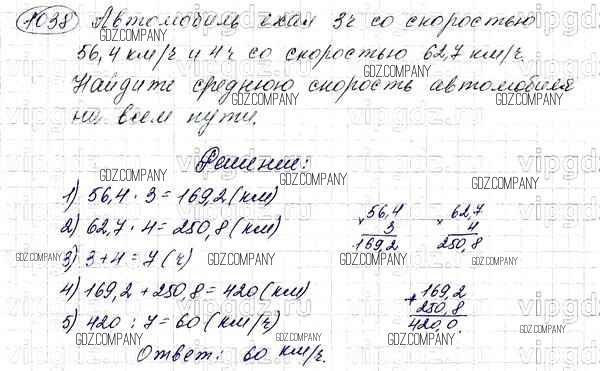 1038 Автомобиль ехал 3ч со скоростью
56,4 км/ч и 4ч со скоростью 62,7 км/ч.
Найдите среднюю скорость автомобиля
на всем пути.
Решение:
1) 56,4 · 3 = 169,2 (км)
2) 62,7 · 4 = 250,8 (км)
3) 3 + 4 = 7 (ч)
4) 169,2 + 250,8 = 420 (км)
5) 420 : 7 = 60 (км/ч)
Ответ: 60 км/ч.
× 56,4
3
169,2
× 62,7
4
250,8
+ 169,2
250,8
420,0
GDZ.COMPANY
vipgdz